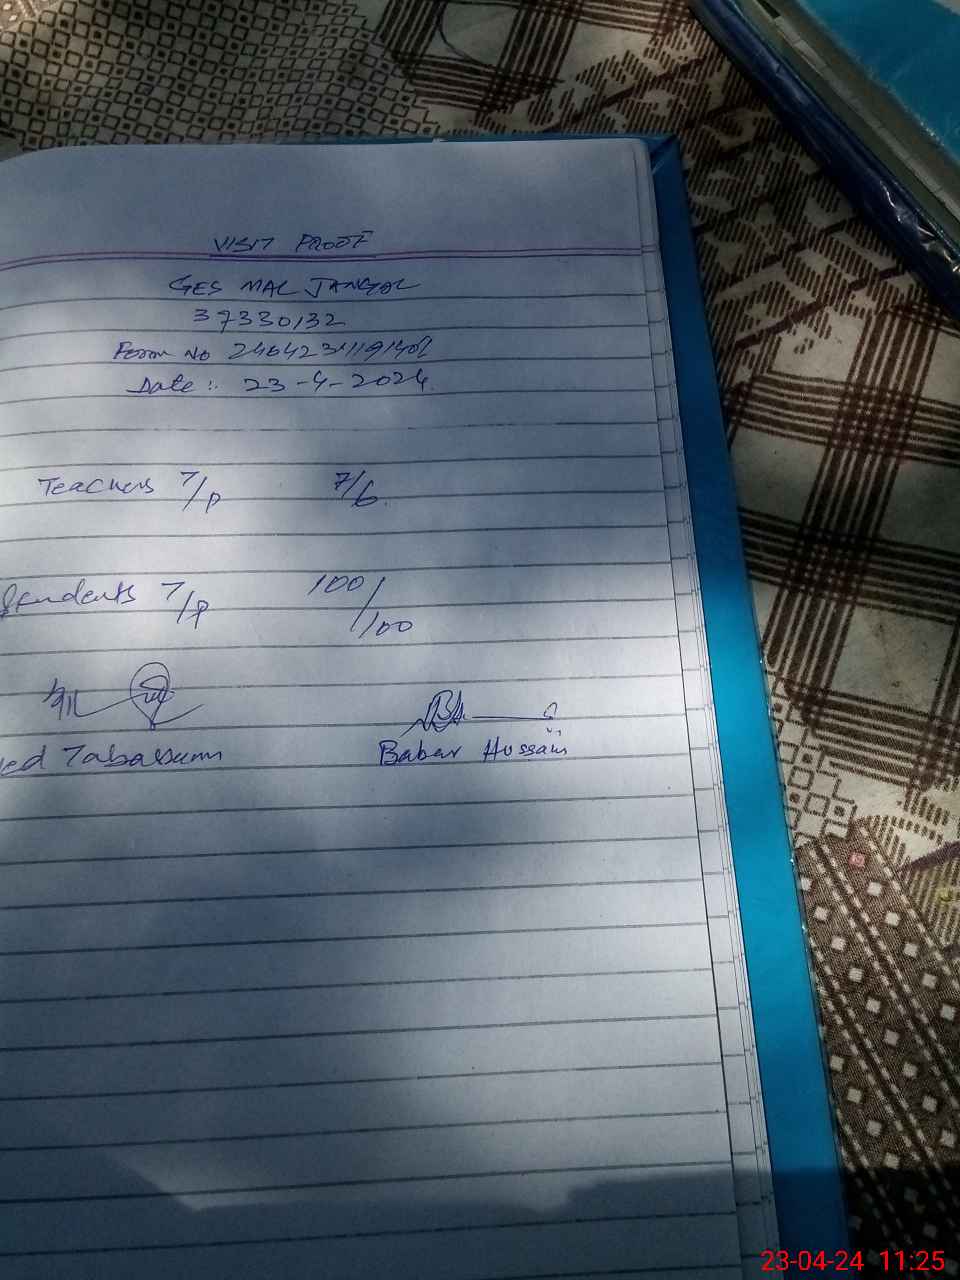 VISIT PROOF
GES MAL JANGAL
37330132
Form No
Date:. 23-4-2024.
Teachers T/P 7/6.
Students T/P 100/100
Tabassum Babar Hussain
23-04-24 11:25